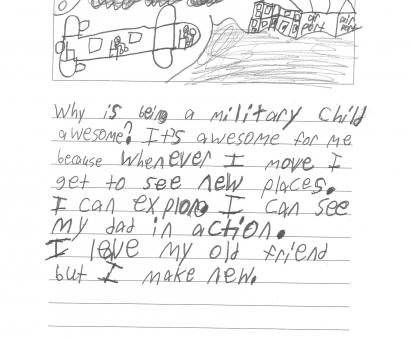 air port
air port
Why is being a military child
awesome? It's awesome for me
because whenever I move I
get to see new places.
I can explore I can see
my dad in action.
I leave my old friend
but I make new.